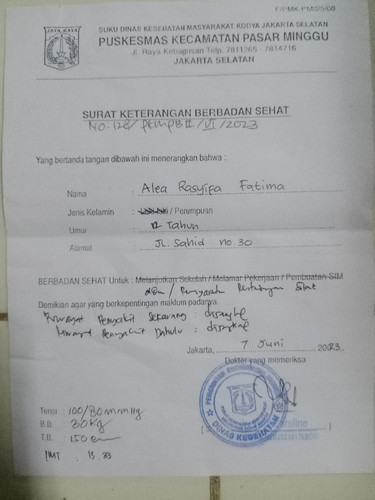 F/PMK-PM/25/08
JAYA RAYA
SUKU DINAS KESEHATAN MASYARAKAT KODYA JAKARTA SELATAN
PUSKESMAS KECAMATAN PASAR MINGGU
Jl. Raya Kebagusan Telp. 7811265 - 7814716
JAKARTA SELATAN
SURAT KETERANGAN BERBADAN SEHAT
NO. 128/ /VI/2023
Yang bertanda tangan dibawah ini menerangkan bahwa :
Nama : Alea Rasyifa Fatima
Jenis Kelamin : / Perempuan
Umur : 12 Tahun
Alamat : JL. Sahid no. 30
BERBADAN SEHAT Untuk : Melanjutkan Sekolah / Melamar Pekerjaan / Pembuatan SIM
Demikian agar yang berkepentingan maklum padanya.
Riwayat Penyakit Sekarang : disangkal
Riwayat Penyakit Dahulu : disangkal
Jakarta, 7 Juni 2023
Dokter yang memeriksa
DINAS KESEHATAN
Tensi : 100/80 mmHg
B.B. : 30 Kg
T.B. : 150 cm
IMT : 13.33